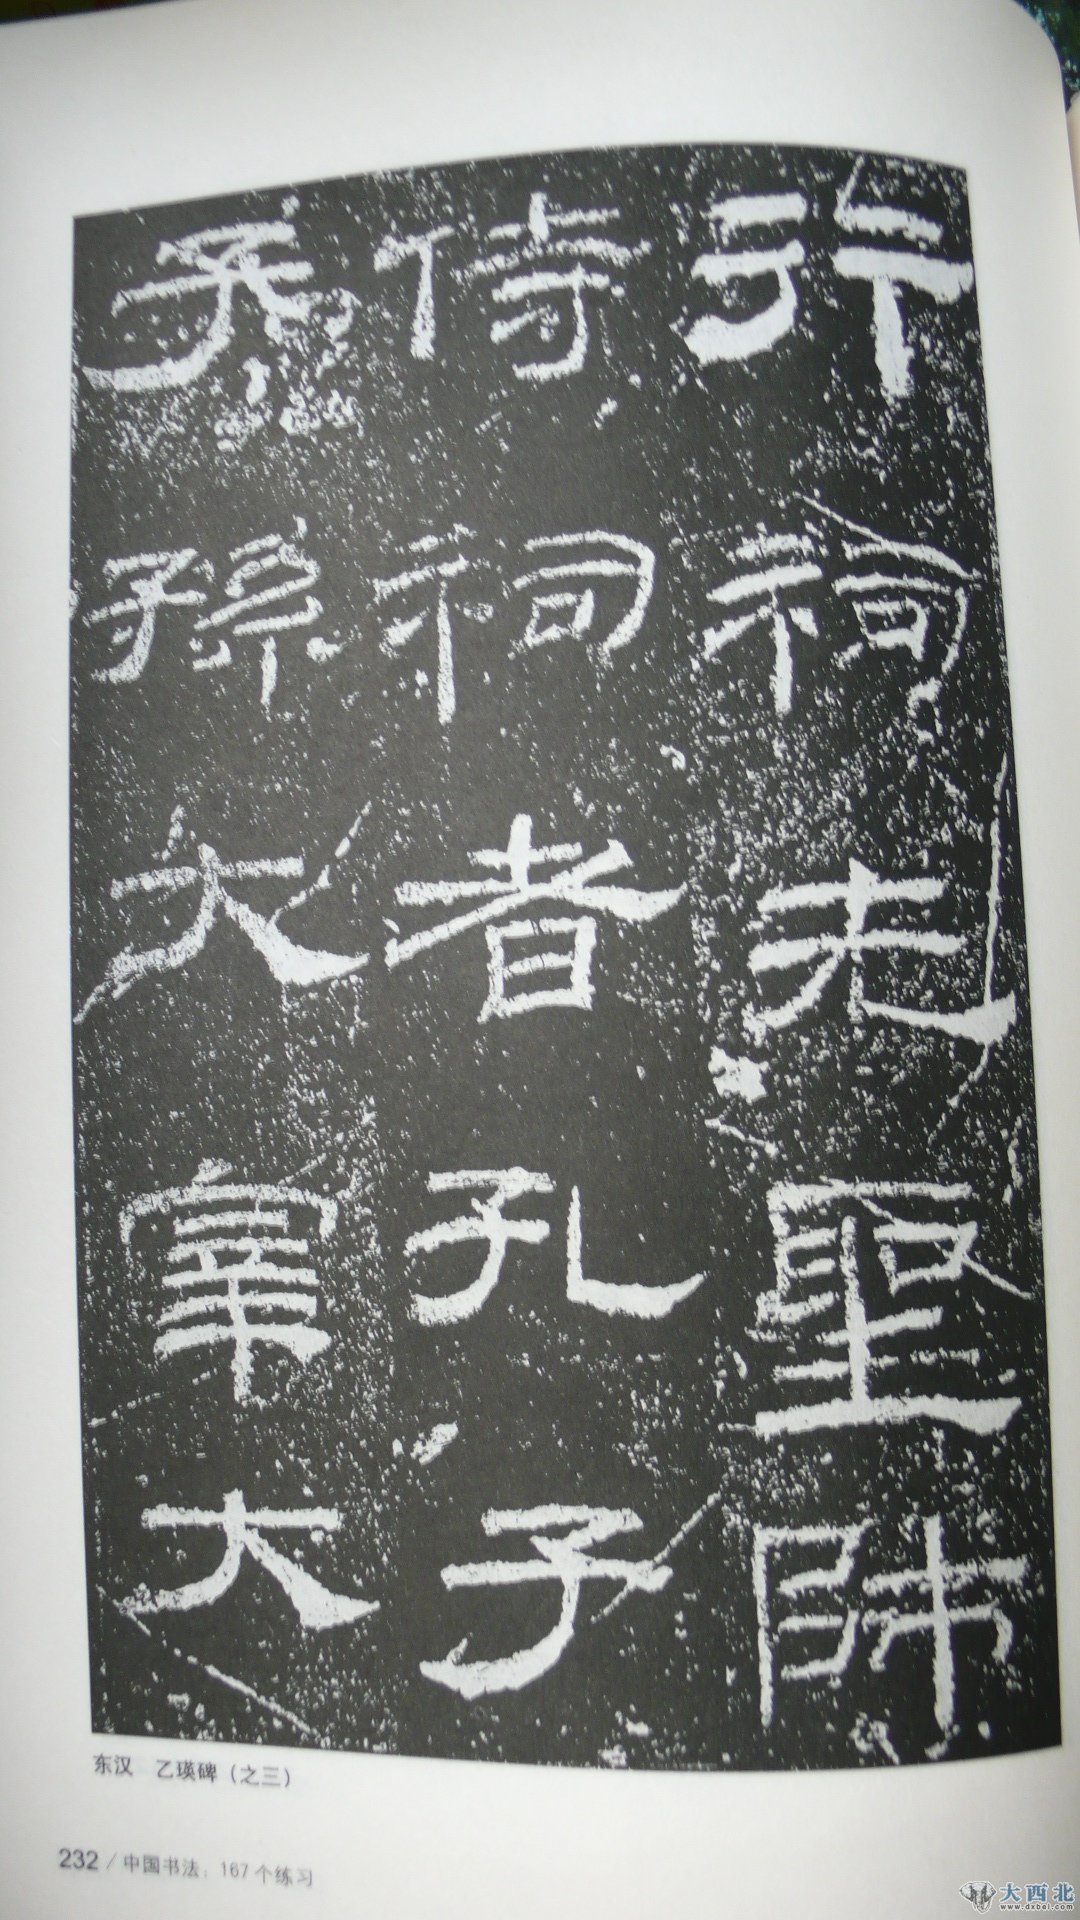 行祠先聖師
侍祠者孔子
子孫大宰大
东汉 乙瑛碑（之三）
232 / 中国书法：167个练习
大西北
www.dxbei.com